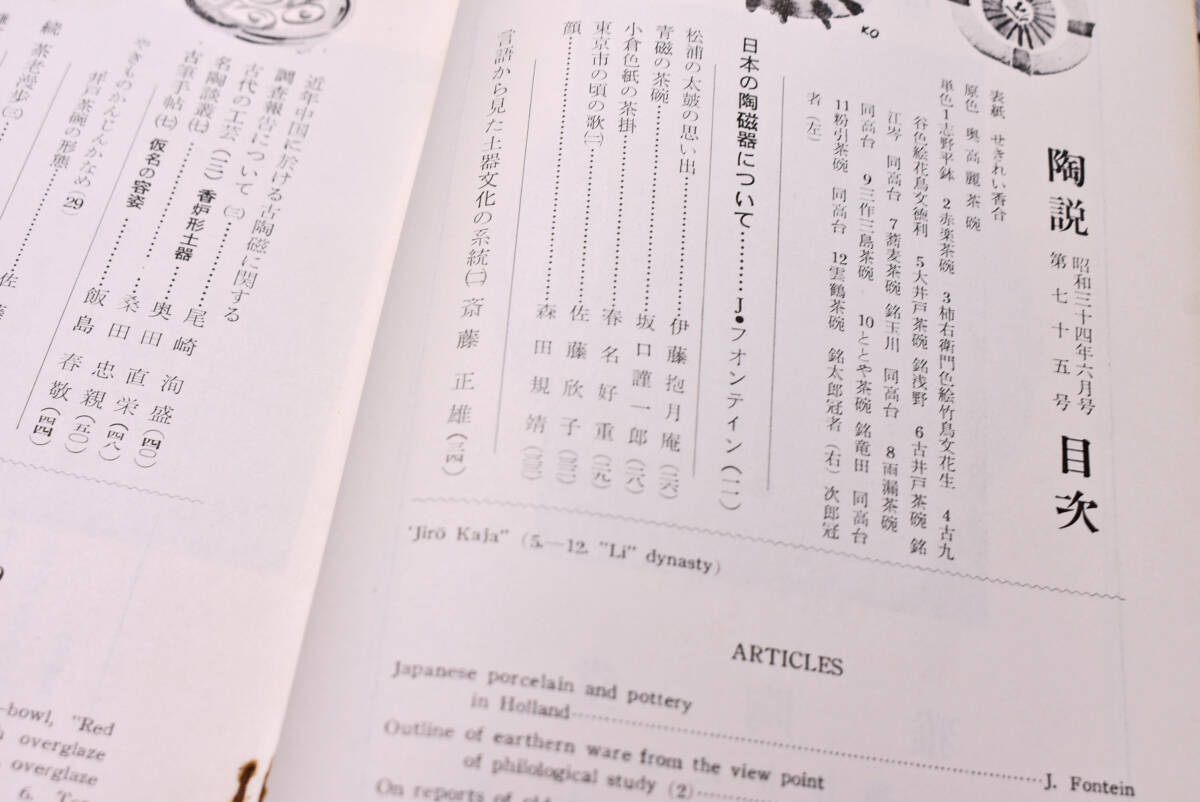 K.O
陶説 昭和三十四年六月号 第七十五号 目次
表紙 せきれい香合
原色 奥高麗茶碗
単色 1志野平鉢 2赤楽茶碗 3柿右衛門色絵竹鳥文花生 4古九
谷色絵花鳥文徳利 5大井戸茶碗 銘浅野 6古井戸茶碗 銘
江岑 同高台 7蕎麦茶碗 銘玉川 同高台 8雨漏茶碗
同高台 9三作三島茶碗 10ととや茶碗 銘竜田 同高台
11粉引茶碗 同高台 12雲鶴茶碗 銘太郎冠者(右) 次郎冠
者(左)
日本の陶磁器について………J・フォンテイン(一一)
松浦の太皷の思い出………伊藤抱月庵(二六)
青磁の茶碗………坂口謹一郎(二八)
小倉色紙の茶掛………春名好重(二九)
東京市の頃の歌(二)………佐藤欣子(三二)
顔………森田規靖(三三)
言語から見た土器文化の系統(二) 斎藤正雄(三四)
近年中国に於ける古陶磁に関する
調査報告について(三)………尾崎洵盛(四〇)
古代の工芸(二) 香炉形土器………奥田直栄(四八)
名陶談叢(七)………桑田忠親(五〇)
古筆手帖(七) 仮名の容姿………飯島春敬(四四)
やきものかんじんかなめ(29)
井戸茶碗の形態
続 茶茗漫歩(三)………佐藤
"Jirō Kaja" (5.—12. "Li" dynasty)
ARTICLES
Japanese porcelain and pottery
in Holland………J. Fontein
Outline of earthern ware from the view point
of philological study (2)………
On reports of
-bowl, "Red
overglaze
overglaze
6.